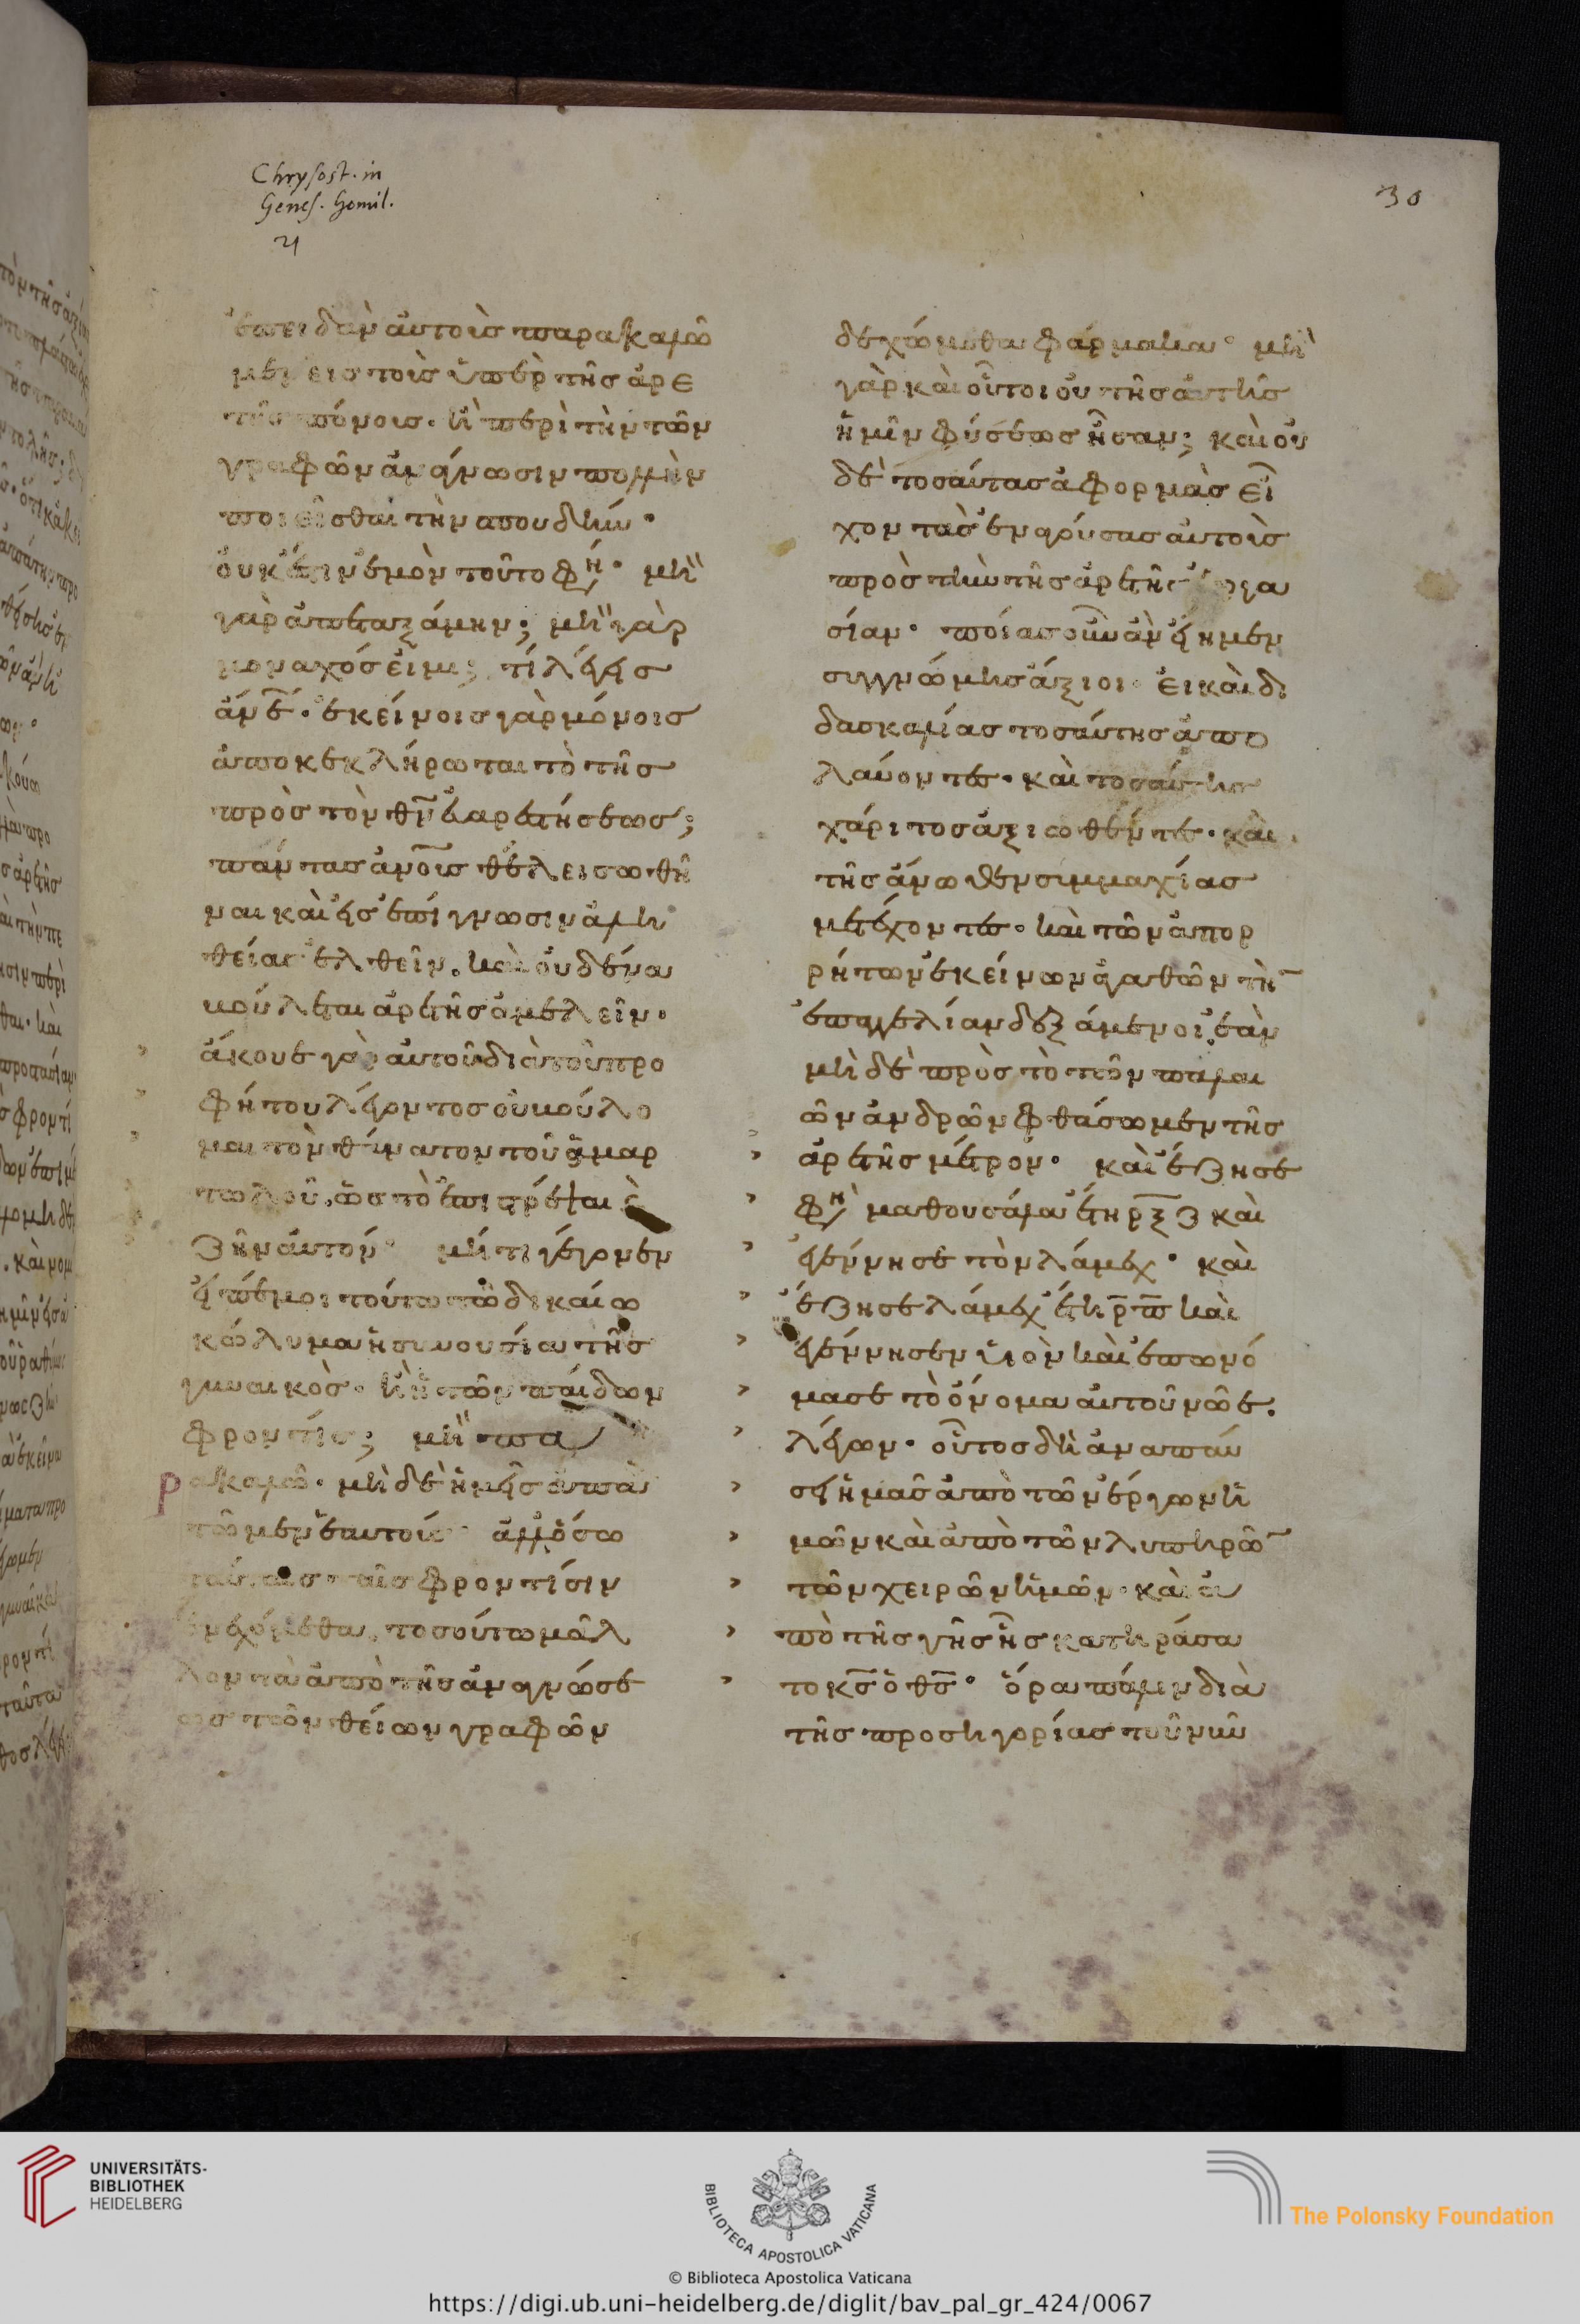 Chrysost. in
Genes. Homil.
21
30
ἐπειδὰν ἀυτοὺσ παρακαλῶ
μὲν εισ τοὺσ ὑπὲρ τῆσ ἀρε
τῆσ πόνοισ· ἢ περὶ τὴν τῶν
γραφῶν ἀνάγνωσιν πολλὴν
ποιεῖσθαι τὴν σπουδήν·
ὀυκ ἔστιν ἐμὸν τοῦτο φη· μὴ
γὰρ ἀπεταξάμην; μὴ γὰρ
μοναχόσ ἐἰμι; τί λέγεισ
ἄνε· ἐκείνοισ γὰρ μόνοισ
ἀποκεκλήρωται τὸ τῆσ
πρὸσ τὸν θν ἐυαρεστήσεωσ;
πάντασ ἀνουσ θέλει σωθῆ
ναι καὶ εἰσ ἐπίγνωσιν ἀλη
θείασ ἐλθεῖν. καὶ ὀυδένα
βούλεται ἀρετῆσ ἀμελεῖν·
ἄκουε γὰρ ἀυτοῦ διὰ τοῦ προ
φήτου λέγοντοσ ὀυ βούλο
μαι τὸν θάνατον τοῦ ἁμαρ
τωλοῦ, ὡσ τὸ ἐπιστρέψαι
ζῆν ἀυτόν· μή τι γέγονεν
εἰπέ μοι τούτω τῶ δικαίω
κώλυμα ἡ συνουσία τῆσ
γυναικὸσ· ἢ ἡ τῶν παίδων
φροντίσ; μὴ πα
ρακαλῶ· μὴ δὲ ἡμεῖσ ἀπα
τῶμεν ἑαυτοὺσ· ἀλλ' ὅσω
ταύταισ ταῖσ φροντίσιν
ἐνεχόμεθα, τοσούτω μᾶλ
λον τὰ ἀπὸ τῆσ ἀναγνώσε
ωσ τῶν θείων γραφῶν
δεχώμεθα φάρμακα· μὴ
γὰρ καὶ οὗτοι ὀυ τῆσ ἀυτῆσ
ἡμῖν φύσεωσ ἦσαν; καὶ ὀυ
δὲ τοσαύτασ ἀφορμὰσ εἶ
χον τὰσ ἐναγούσασ ἀυτοὺσ
πρὸσ τὴν τῆσ ἀρετῆσ ἐργα
σίαν· ποίασ οὖν ἂν εἴημεν
συγγνώμησ ἄξιοι· ἐι καὶ δι
δασκαλίασ τοσαύτησ ἀπο
λαύοντεσ· καὶ τοσαύτησ
χάριτοσ ἀξιωθέντεσ· καὶ
τῆσ ἄνωθεν συμμαχίασ
μετέχοντεσ· καὶ τῶν ἀπορ
ρήτων ἐκείνων ἀγαθῶν τὴν
ἐπαγγελίαν δεξάμενοι, ἐὰν
μὴ δὲ πρὸσ τὸ τῶν παλαι
ῶν ἀνδρῶν φθάσωμεν τῆσ
ἀρετῆσ μέτρον· καὶ ἔζησε
φη μαθουσάλα ἔτη ρξζ καὶ
ἐγέννησε τὸν λάμεχ· καὶ
ἔζησε λάμεχ ἔτη ρπ καὶ
ἐγέννησεν υἱὸν καὶ ἐπωνό
μασε τὸ ὄνομα ἀυτοῦ νῶε.
λέγων· οὗτοσ διαναπαύ
σει ἡμᾶσ ἀπὸ τῶν ἔργων ἡ
μῶν καὶ ἀπὸ τῶν λυπηρῶν
τῶν χειρῶν ἡμῶν· καὶ ἀ
πὸ τῆσ γῆσ ἧσ κατηράσα
το κσ ὁ θσ· ὅρα πάλιν διὰ
τῆσ προσηγορίασ τοῦ νῦν
UNIVERSITÄTS-
BIBLIOTHEK
HEIDELBERG
BIBLIOTECA APOSTOLICA VATICANA
The Polonsky Foundation
© Biblioteca Apostolica Vaticana
https://digi.ub.uni-heidelberg.de/diglit/bav_pal_gr_424/0067